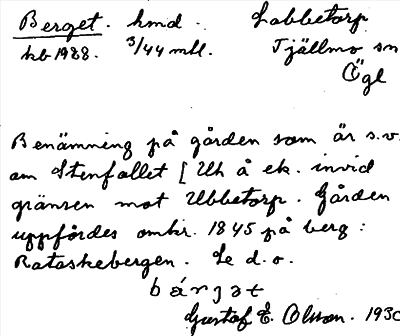 Berget. hmd. Labbetorp
hb 1988. 3/44 mtl. Tjällmo sn
Ögl
Benämning på gården som är s.v.
om Stenfallet [Uh å ek. invid
gränsen mot Ubbetorp. Gården
uppfördes omkr. 1845 på berg:
Rataskebergen. Se d.o.
bärjət
Gustaf E. Olson. 1930